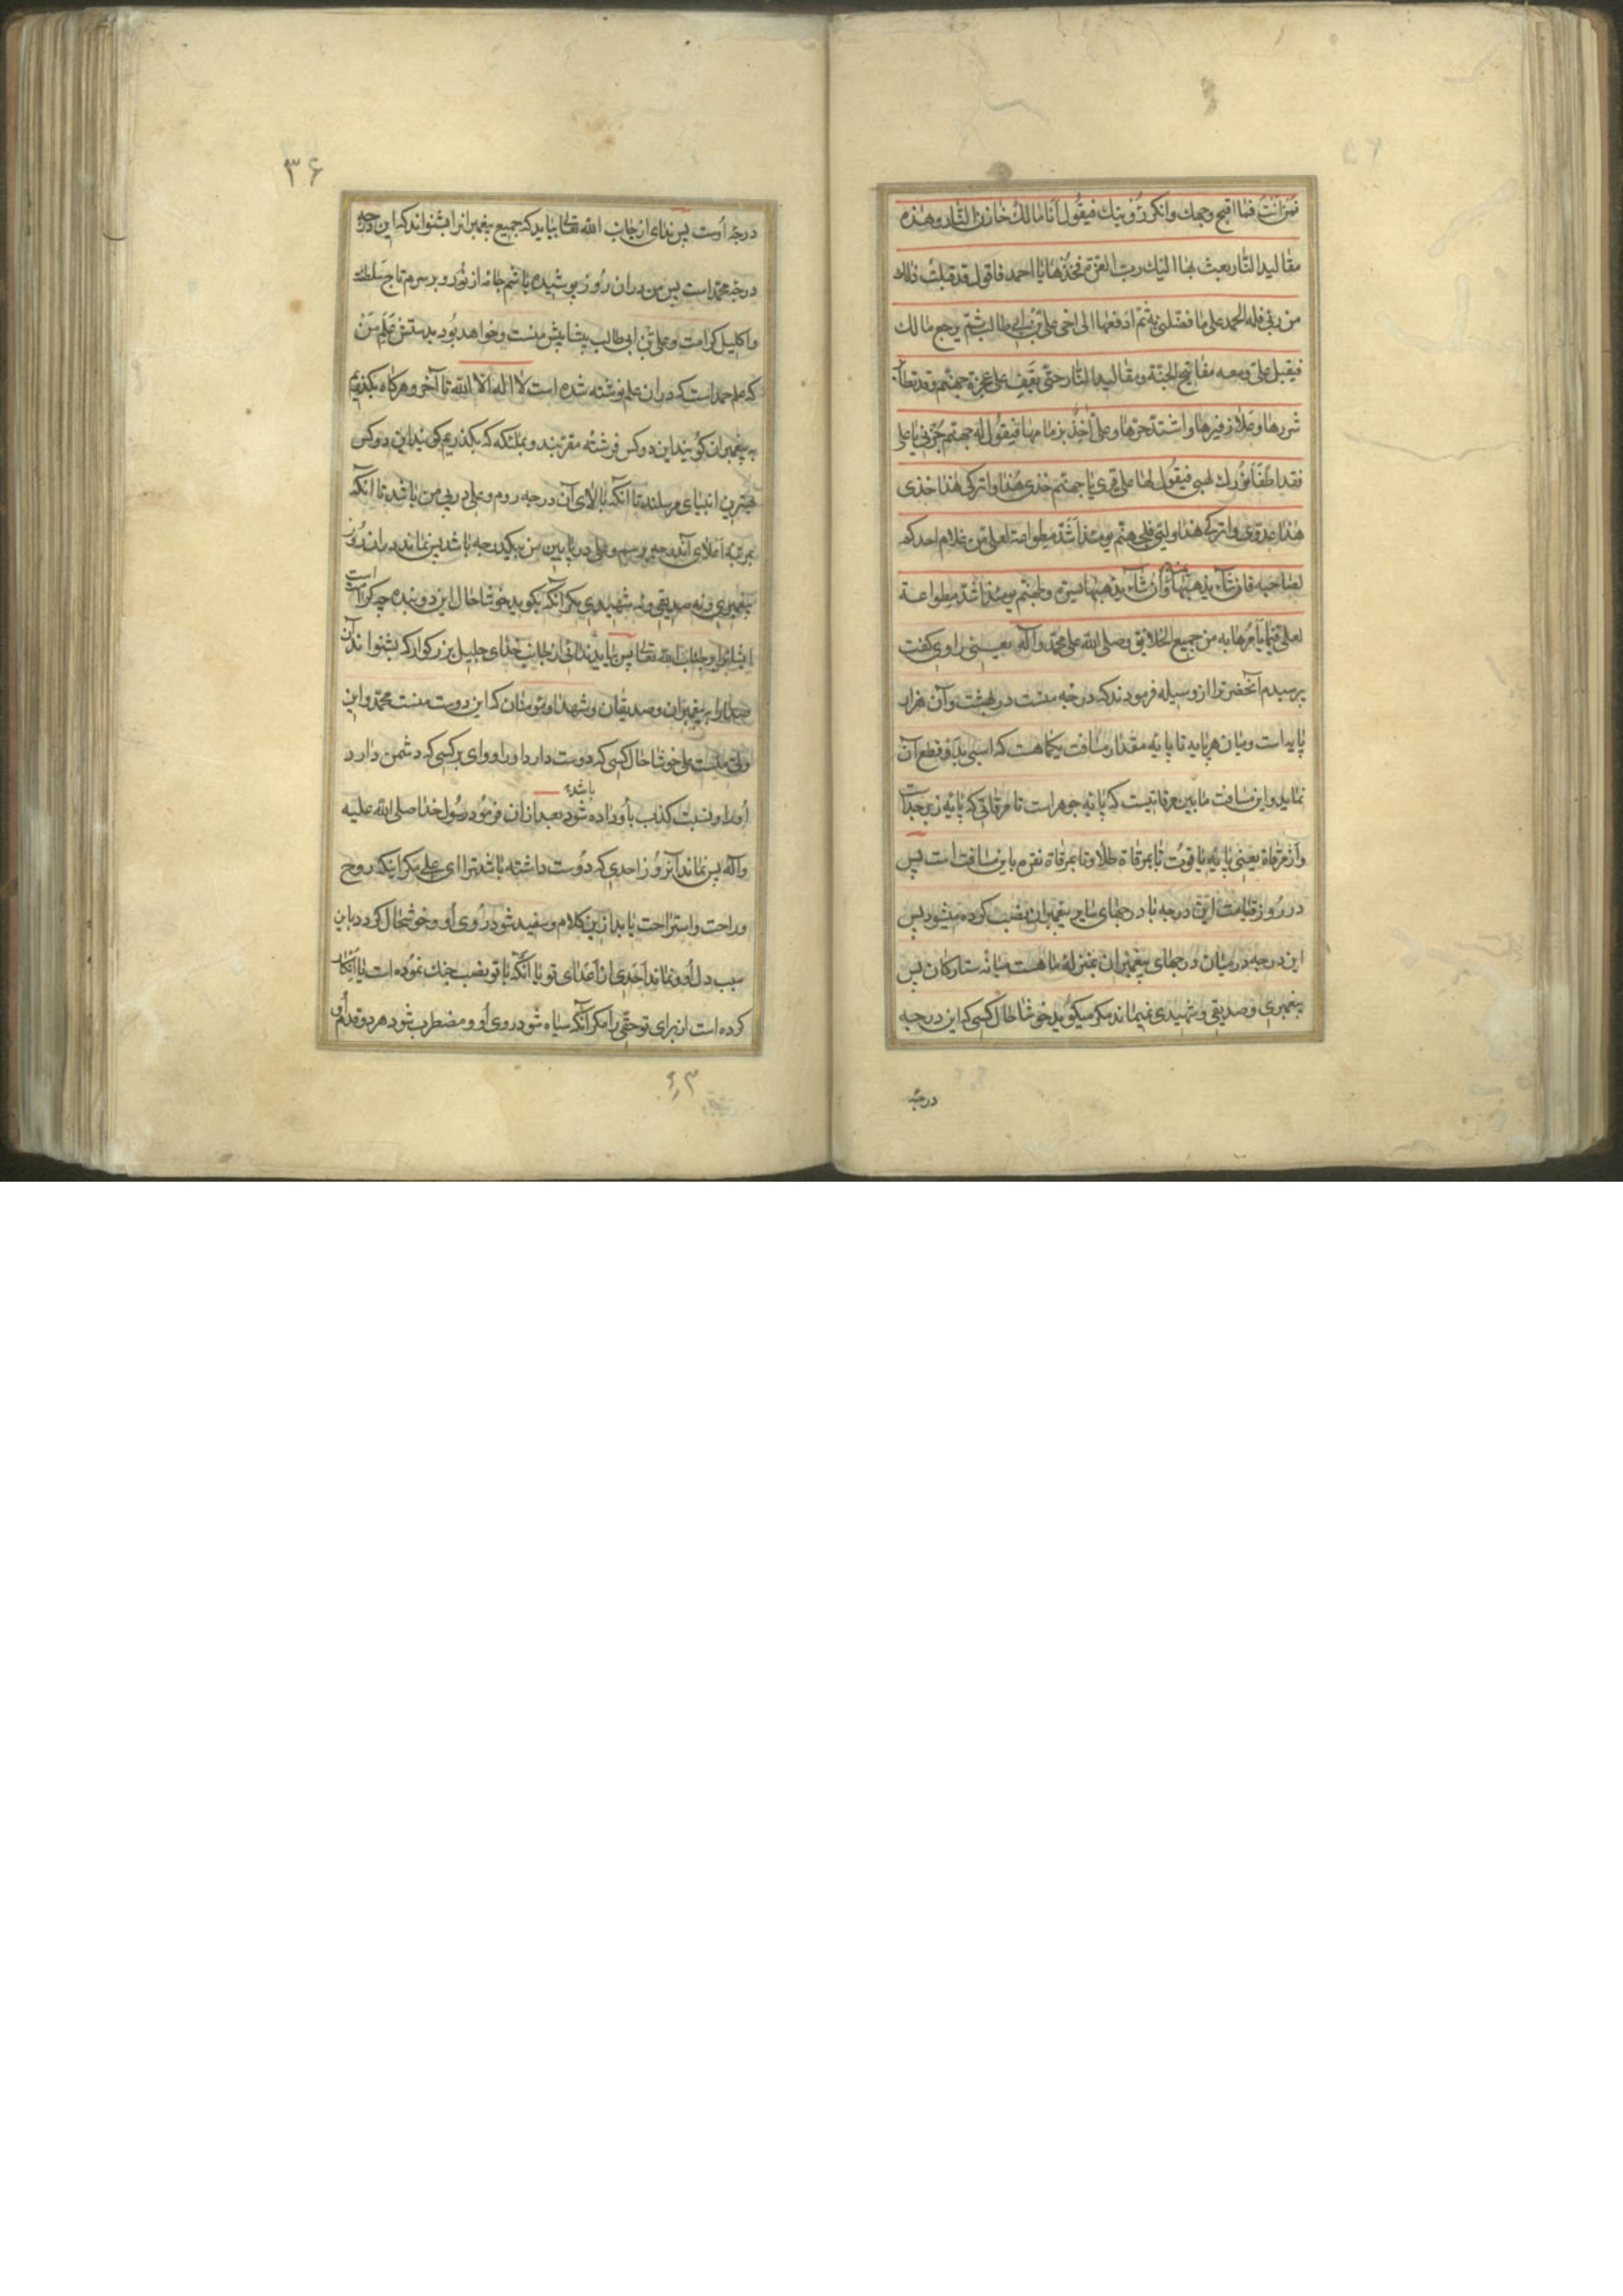 فمن انت فما اقبح وجهك وانكر رؤيتك فيقول انا مالك خازن النار وهذه
مقاليد النار بعث بها اليك رب العزة فخذها يا احمد فاقول قد قبلت ذلك
من ربي فله الحمد على ما فضلني به ثم ادفعها الى اخي علي بن ابي طالب ثم يرجع مالك
فيقبل علي ومعه مفاتيح الجنة ومقاليد النار حتى يقف على عجزة جهنم وقد تطاير
شررها وعلا زفيرها واشتد حرها وعلي آخذ بزمامها فيقول له جهنم جزني يا علي
فقد اطفأ نورك لهبي فيقول لها علي قري يا جهنم خذي هذا واتركي هذا خذي
هذا عدوي واتركي هذا وليي فلجهنم يومئذ اشد مطواعة لعلي من غلام احدكم
لصاحبه فان شاء يذهبها يمنة وان شاء يذهبها يسرة ولجهنم يومئذ اشد مطواعة
لعلي فيما يأمرها به من جميع الخلايق وصلى الله على محمد وآله يعني راوي كفت
پرسيدم آنحضرترا از وسيله فرمودند كه درجه منست در بهشت وآن هزار
پايه است وميان هر پايه تا پايه مقدار مسافت يكماهست كه اسبى بدو قطع آن
نمايد واين مسافت مابين مرقاتيست كه پايه جوهر است تا مرقاتى كه پايه زبرجد است
وآن مرقاة يعنى پايه ياقوت تا بمرقاة طلا وتا بمرقاة نقره باين مسافت است پس
در روز قيامت اين درجه با درجهاى ساير پيغمبران نصب كرده ميشود پس
اين درجه در ميان درجهاى پيغمبران بمنزله ماهست ميانه ستاركان پس
پيغمبرى وصديقى وشهيدى نميماند مكر ميكويد خوشا حال كسى كه اين درجه
درجه
۳۶
درجه اوست پس نداى از جانب الله تعالى بيايد كه جميع پيغمبرانرا بشنواند كه اين درجه
درجه محمد است پس من در ان روز پوشيده باشم جامه از نور وبر سرم تاج سلطنت
واكليل كرامت وعلي بن ابى طالب پيشاپيش منست وخواهد بود بدستش علم من
كه علم حمد است كه در ان علم نوشته شده است لا اله الا الله تا آخر وهركاه بكذريم
به پيغمبران كويند اين دو كس فرشته مقربند وبملئكه كه بكذريم كويند اين دو كس
بهترين انبياى مرسلند تا آنكه بالاى آن درجه روم وعلى در پى من باشد تا آنكه
بمرتبه اعلاى آندرجه برسم وعلى در پايين من بيكدرجه باشد پس نماند در ان روز
پيغمبرى ونه صديقى ونه شهيدى مكر آنكه بكويد خوشا حال اين دو بنده چه كرامت است
ايشانرا بر جناب الله تعالى پس بيايد ندائى از جانب خداى جليل بزركوار كه بشنواند آن
صدارا به پيغمبران وصديقان وشهدا ومؤمنان كه اين دوست منست محمد واين
ولى منست على خوشا حال كسى كه دوست دارد اورا وواى بر كسى كه دشمن دارد
اورا ونسبت كذب باو داده باشد بعد از ان فرمود رسول خدا صلى الله عليه
وآله پس نماند آنروز احدى كه دوست داشته باشد ترا اى على مكر اينكه روح
وراحت واستراحت يابد از ين كلام وسفيد شود روى او وخوشحال كردد باين
سبب دل او ونماند احدى از اعداى تو يا آنكه با تو نصب جنك نموده است يا انكار
كرده است از براى تو حقى را مكر آنكه سياه شود روى او ومضطرب شود هر دو قدم او